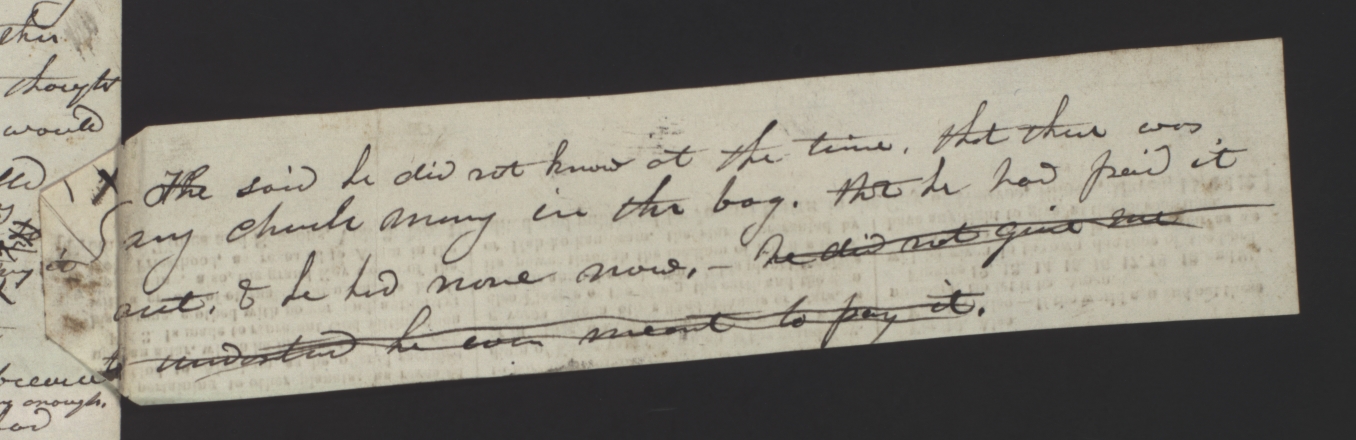 ther
thought
would
X He said he did not know at the time, that there was
any church money in the bag. that he had paid it
out, & he had none now, – he did not give me
to understand he ever meant to pay it.
it
because
enough,
had